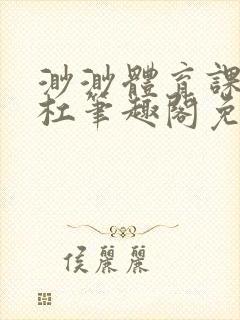 渺渺體育課
杜筆趣閣免
侯麗麗